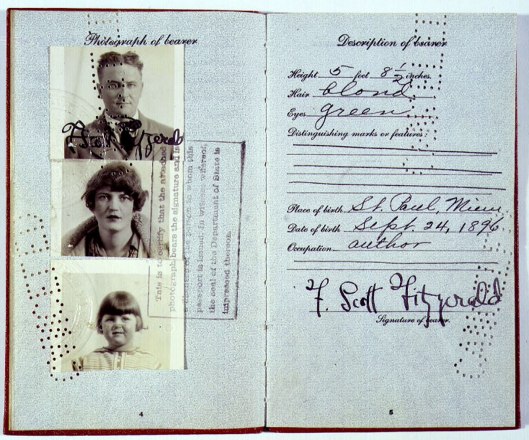 Photograph of bearer
F. Scott Fitzgerald
This is to certify that the attached
photograph bears the signature and is
person to whom this
passport is issued. In witness whereof,
the seal of the Department of State is
impressed thereon.
4
Description of bearer
Height 5 feet 8 1/2 inches.
Hair blond
Eyes green
Distinguishing marks or features:
Place of birth St. Paul, Minn
Date of birth Sept. 24, 1896
Occupation author
F. Scott Fitzgerald
Signature of bearer.
5